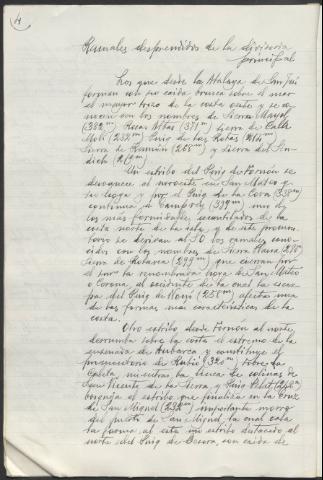 14
Ramales desprendidos de la divisoria
principal
Los que desde la Atalaya de San José
forman con su caida brusca sobre el mar
el mayor trozo de la costa oeste y se co-
nocen con los nombres de Sierra Mayol
(382m) Rocas Altas (371m) Sierra de Cala
Molí (239m) Puig de las Rotas (414m)
Sierra de Ramón (258m) y Sierra del
(219m)
Un estribo del Puig de Fornón se
desvanece al noroeste en San Mateo y
se liga por el Puig de la Cova (338m)
continúa á Campvey (399m) uno de
los más formidables acantilados de la
costa norte de la isla, y de este promon-
torio se derivan al SO los ramales cono-
cidos con los nombres de Sierra Plana (278m)
Sierra de Retorca (299m) que cierran por
el sur la renombrada hoya de San Mateo
o Corona, al occidente de la cual la escar-
pa del Puig de Nonó (258m) afecta una
de las formas más características de la
costa.
Otro estribo desde Fornón al norte
derrumba sobre la costa el extremo de la
ensenada de Aubarca y constituye el
promontorio de Rubió (320m) sobre la
Caleta, mientras la linea de colinas de
San Vicente de la Sierra y Puig Pelat (240m)
bosqueja el estribo que finaliza en la Cruz
de San Miguel (232m) importante morro
del puerto de San Miguel, la cual cala
la forma al este un estribo destacado al
norte del Puig de Cosera, con caida de